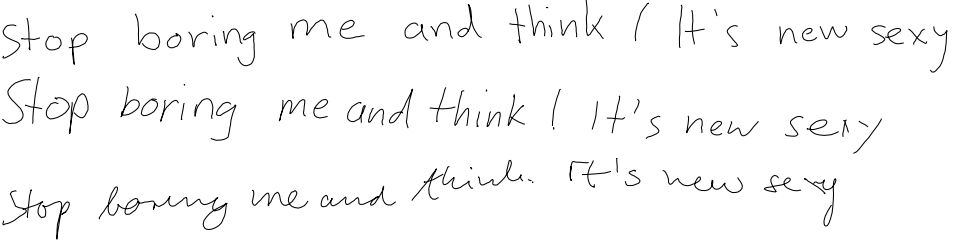 Stop boring me and think! It's new sexy
Stop boring me and think! It's new sexy
Stop boring me and think. It's new sexy